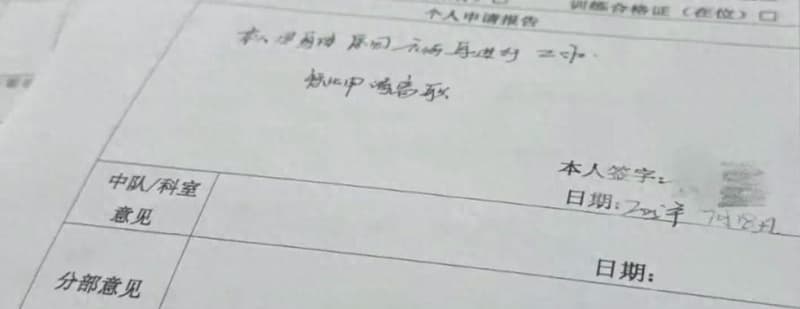 训练合格证（在位）□
个人申请报告
本人 原因无法 进行工作.
特此申请离职
本人签字:
日期: 年 月 日
中队/科室
意见
日期:
分部意见